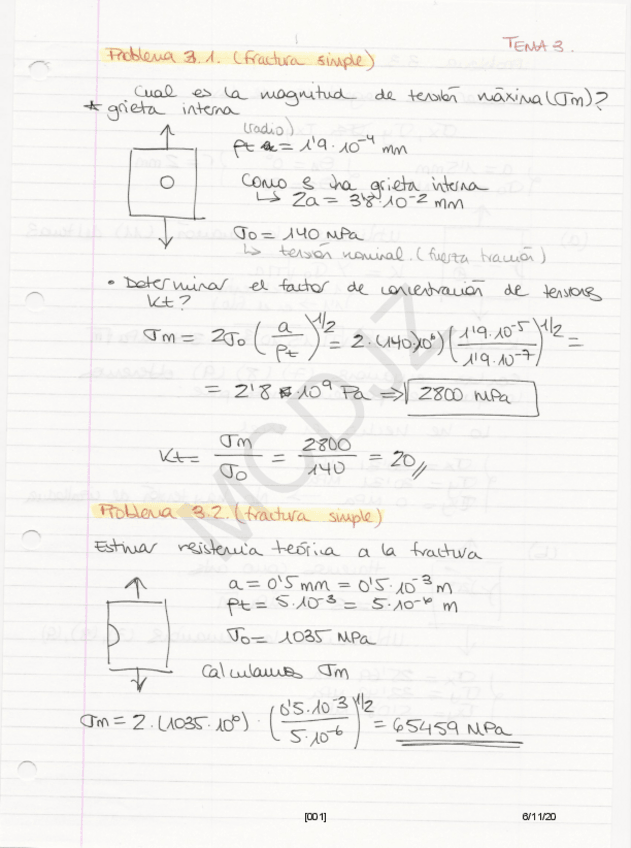 TEMA 3.
Problema 3.1. (fractura simple)
Cual es la magnitud de tensión máxima (σm)?
* grieta interna
(radio)
ρt = 1'9·10⁻⁴ mm
Como s ha grieta interna
↳ 2a = 3'8·10⁻² mm
σo = 140 MPa
↳ tensión nominal. (fuerza tracción)
• Determinar el factor de concentración de tensiones
Kt?
σm = 2σo (a/ρt)^1/2 = 2·(140·10⁶) (1'9·10⁻⁵/1'9·10⁻⁷)^1/2 =
= 2'8·10⁹ Pa ⇒ 2800 MPa
Kt = σm/σo = 2800/140 = 20//
Problema 3.2. (fractura simple)
Estimar resistencia teórica a la fractura
a = 0'5 mm = 0'5·10⁻³ m
ρt = 5·10⁻³ = 5·10⁻⁶ m
σo = 1035 MPa
Calculamos σm
σm = 2·(1035·10⁶)·(0'5·10⁻³/5·10⁻⁶)^1/2 = 65459 MPa
MCDJZ
[001]
6/11/20